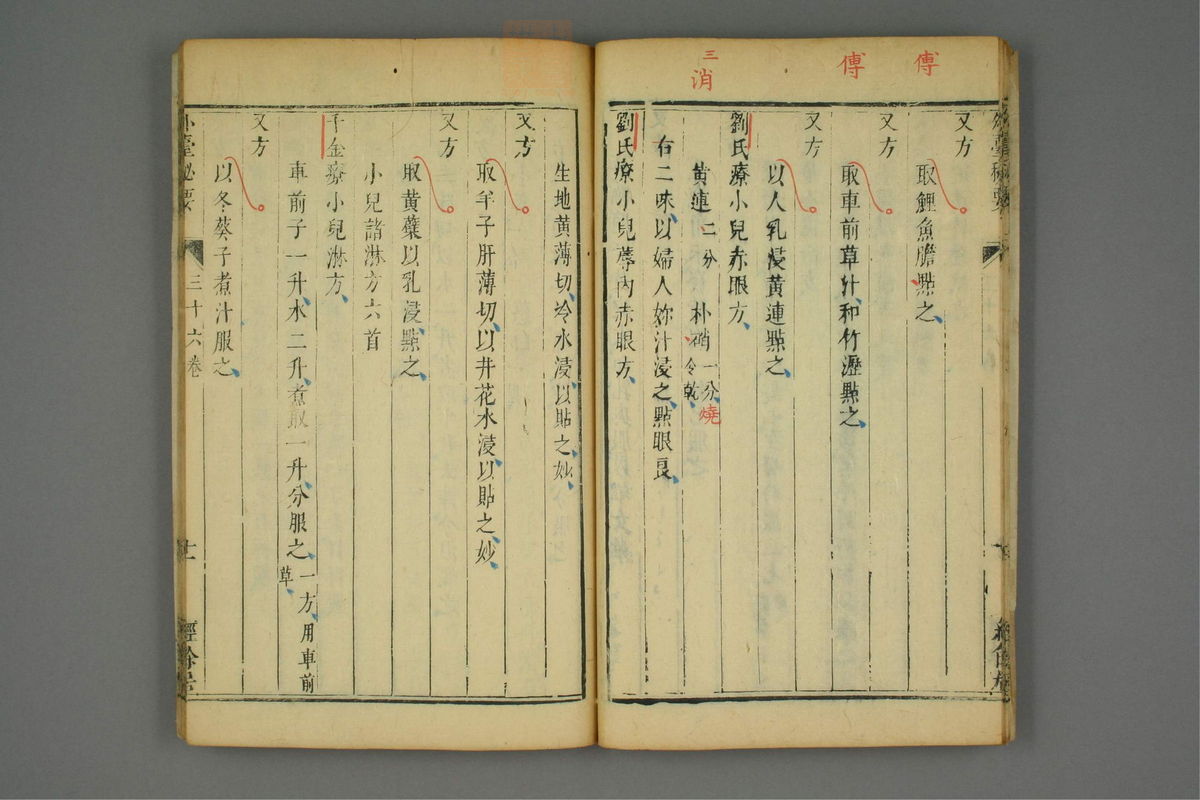 傅
傅
三
消
又方
取鯉魚膽點之
又方
取車前草汁和竹瀝點之
又方
以人乳浸黃連點之
劉氏療小兒赤眼方
黃連二分 朴硝一分燒令乾
右二味以婦人妳汁浸之點眼良
劉氏療小兒蓐內赤眼方
生地黃薄切冷水浸以貼之妙
又方
取羊子肝薄切以井花水浸以貼之妙
又方
取黃蘗以乳浸點之
小兒諸淋方六首
千金療小兒淋方
車前子一升水二升煮取一升分服之一方用車前草
又方
以冬葵子煮汁服之
外臺秘要 三十六卷 十一 經餘居